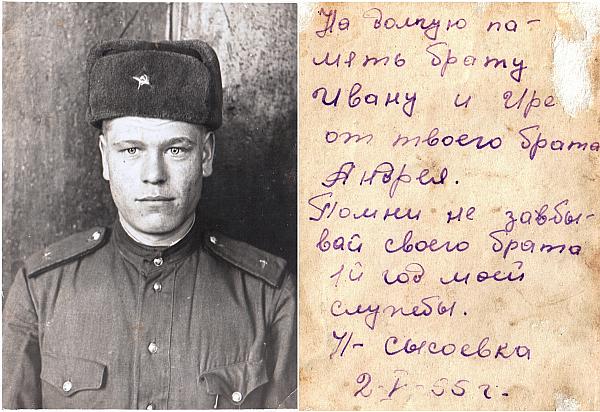 На долгую па-
мять брату
Ивану и Ире
от твоего брата
Андрея.
Помни не завбы-
вай своего брата
1й год моей
службы.
Н-Сысоевка
2-V-55 г.